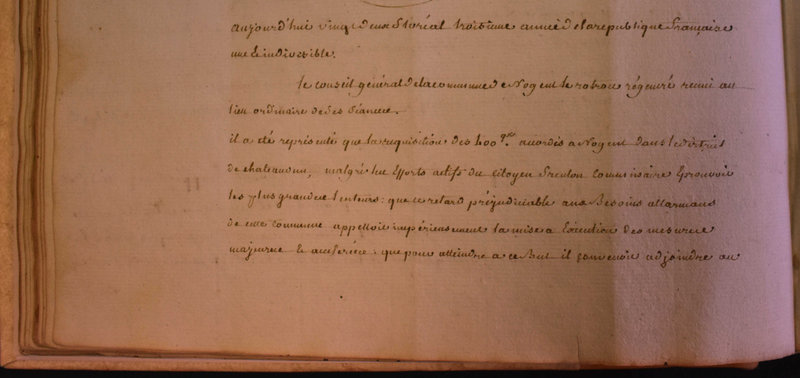 aujourd'hui vingt deux floréal troisieme année de la republique française
une & indivisible.
le conseil général de la commune de Nogent le rotrou régénéré reuni au
lieu ordinaire de ses séances.
il a été représenté que la requisition des 400 qx. accordés a Nogent dans le district
de chateaudun, malgré les efforts actifs du citoyen commissaire éprouvoit
les plus grandes lenteurs: que ce retard préjudiciable aux besoins allarmans
de cette commune appelloit impérieusement la mise a Execution des mesures
majeures & accelerées: que pour atteindre a ce but il convenoit adjoindre au